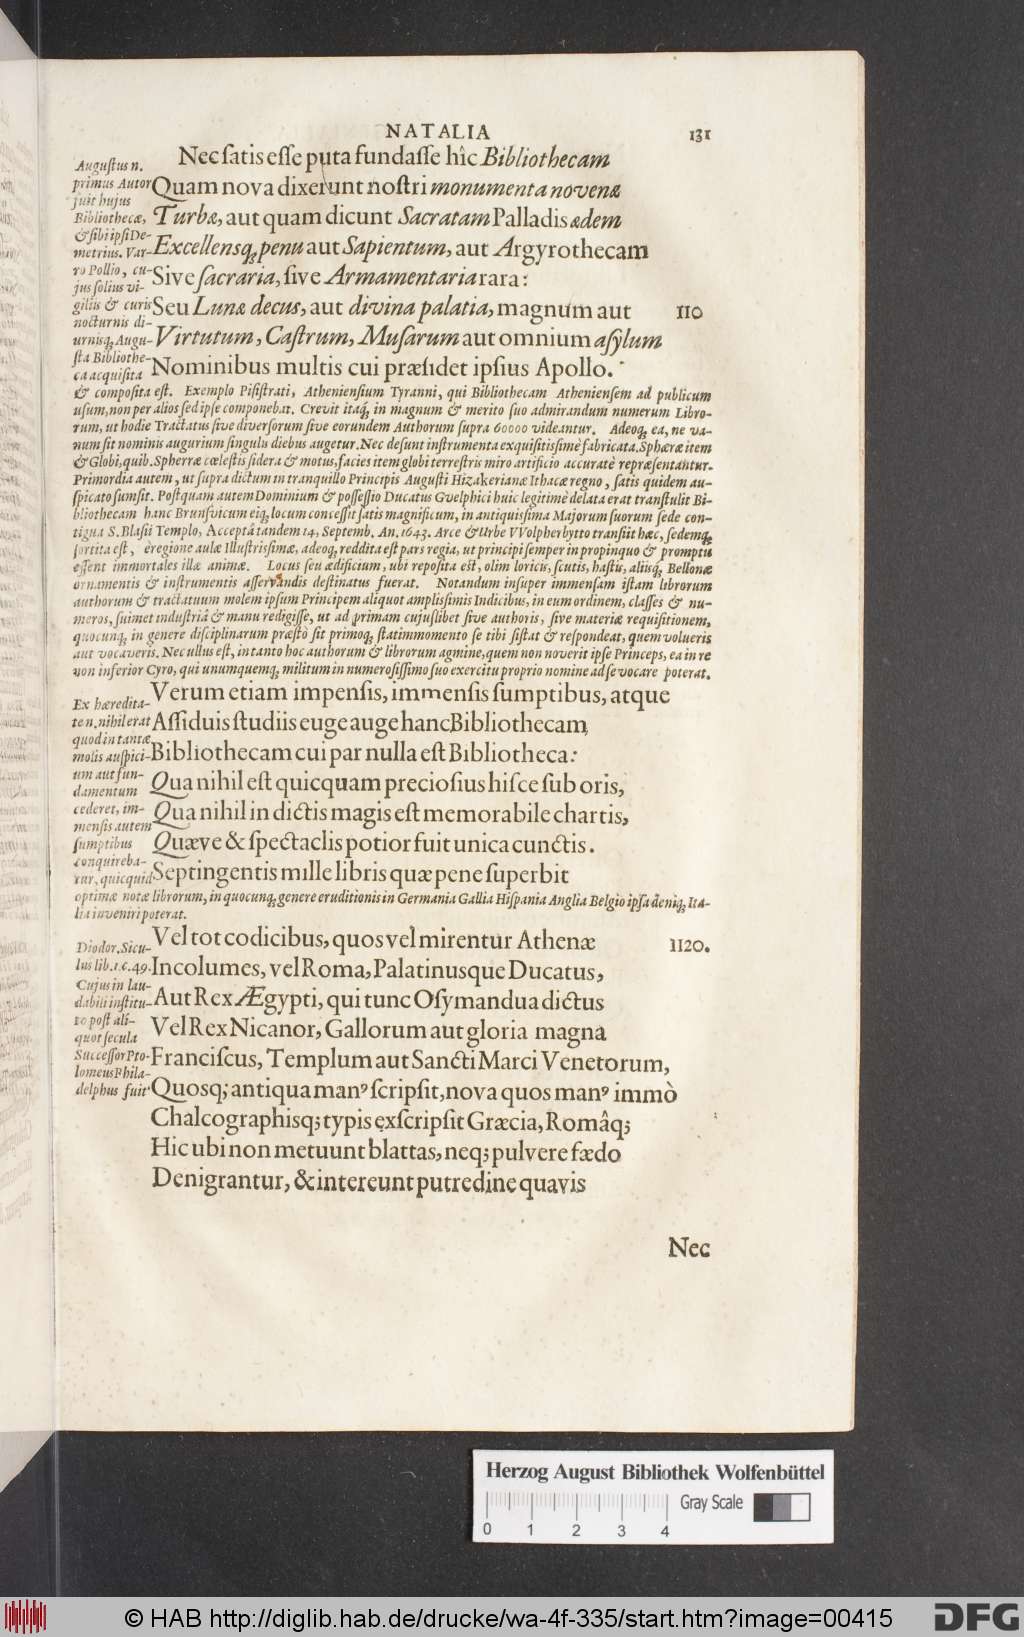 NATALIA 131
Nec ſatis eſſe puta fundaſſe hîc Bibliothecam
Quam nova dixerunt noſtri monumenta novenæ
Turbæ, aut quam dicunt Sacratam Palladis ædem
Excellensq; penu aut Sapientum, aut Argyrothecam
Sive ſacraria, ſive Armamentaria rara:
Seu Lunæ decus, aut divina palatia, magnum aut 110
Virtutum, Caſtrum, Muſarum aut omnium aſylum
Nominibus multis cui præſidet ipſius Apollo.
Auguſtus n.
primus Autor
fuit hujus
Bibliothecæ,
& ſibi ipſi De-
metrius. Var-
ro Pollio, cu-
jus ſolius vi-
giliis & curis
nocturnis di-
urnisq; Augu-
ſta Bibliothe-
ca acquiſita
& compoſita eſt. Exemplo Piſiſtrati, Athenienſium Tyranni, qui Bibliothecam Athenienſem ad publicum
uſum, non per alios ſed ipſe componebat. Crevit itaq; in magnum & merito ſuo admirandum numerum Libro-
rum, ut hodie Tractatus ſive diverſorum ſive eorundem Authorum ſupra 60000 videantur. Adeoq; ea, ne va-
num ſit nominis augurium ſingulu diebus augetur. Nec deſunt inſtrumenta exquiſitiſsimè fabricata. Sphæræ item
& Globi, quib. Spherræ cœleſtis ſidera & motus, facies item globi terreſtris miro artificio accuratè repræſentantur.
Primordia autem, ut ſupra dictum in tranquillo Principis Auguſti Hizakerianæ Ithacæ regno, ſatis quidem au-
ſpicato ſumſit. Poſtquam autem Dominium & poſſeſſio Ducatus Guelphici huic legitimè delata erat tranſtulit Bi-
bliothecam hanc Brunſvicum eiq; locum conceſſit ſatis magnificum, in antiquiſsima Majorum ſuorum ſede con-
tigua S. Blaſii Templo, Acceptâ tandem 14, Septemb. An. 1643. Arce & Urbe VVolpherbytto tranſiit hæc, ſedemq;
ſortita eſt, èregione aulæ Illuſtriſsimæ, adeoq; reddita eſt pars regia, ut principi ſemper in propinquo & promptu
eſſent immortales illæ animæ. Locus ſeu ædificium, ubi repoſita eſt, olim loricis, ſcutis, haſtu, aliisq; Bellonæ
ornamentis & inſtrumentis aſſervandis deſtinatus fuerat. Notandum inſuper immenſam iſtam librorum
authorum & tractatuum molem ipſum Principem aliquot ampliſsimis Indicibus, in eum ordinem, claſſes & nu-
meros, ſuimet induſtriâ & manu redigiſſe, ut ad primam cujuſlibet ſive authoris, ſive materiæ requiſitionem,
quocunq; in genere diſciplinarum præſtò ſit primoq; ſtatim momento ſe tibi ſiſtat & reſpondeat, quem volueris
aut vocaveris. Nec ullus eſt, in tanto hoc authorum & librorum agmine, quem non noverit ipſe Princeps, ea in re
non inferior Cyro, qui unumquemq; militum in numeroſiſſimo ſuo exercitu proprio nomine ad ſe vocare poterat.
Verum etiam impenſis, immenſis ſumptibus, atque
Aſſiduis ſtudiis euge auge hanc Bibliothecam,
Bibliothecam cui par nulla eſt Bibliotheca:
Qua nihil eſt quicquam precioſius hiſce ſub oris,
Qua nihil in dictis magis eſt memorabile chartis,
Quæve & ſpectaclis potior fuit unica cunctis.
Septingentis mille libris quæ pene ſuperbit
Ex hæredita-
te n. nihil erat
quod in tantæ
molis auſpici-
um aut fun-
damentum
cederet, im-
menſis autem
ſumptibus
conquireba-
tur, quicquid
optimæ notæ librorum, in quocunq; genere eruditionis in Germania Gallia Hiſpania Anglia Belgio ipſa deniq; Ita-
lia inveniri poterat.
Vel tot codicibus, quos vel mirentur Athenæ 1120.
Incolumes, vel Roma, Palatinusque Ducatus,
Aut Rex Ægypti, qui tunc Oſymandua dictus
Vel Rex Nicanor, Gallorum aut gloria magna
Franciſcus, Templum aut Sancti Marci Venetorum,
Quosq; antiqua manꝰ ſcripſit, nova quos manꝰ immò
Chalcographisq; typis exſcripſit Græcia, Româq;
Hic ubi non metuunt blattas, neq; pulvere fædo
Denigrantur, & intereunt putredine quavis
Diodor. Sicu-
lus lib. 1. c. 49.
Cujus in lau-
dabili inſtitu-
to poſt ali-
quot ſecula
Succeſſor Pto-
lomeus Phila-
delphus fuit
Nec
Herzog August Bibliothek Wolfenbüttel
Gray Scale
0 1 2 3 4
© HAB http://diglib.hab.de/drucke/wa-4f-335/start.htm?image=00415
DFG